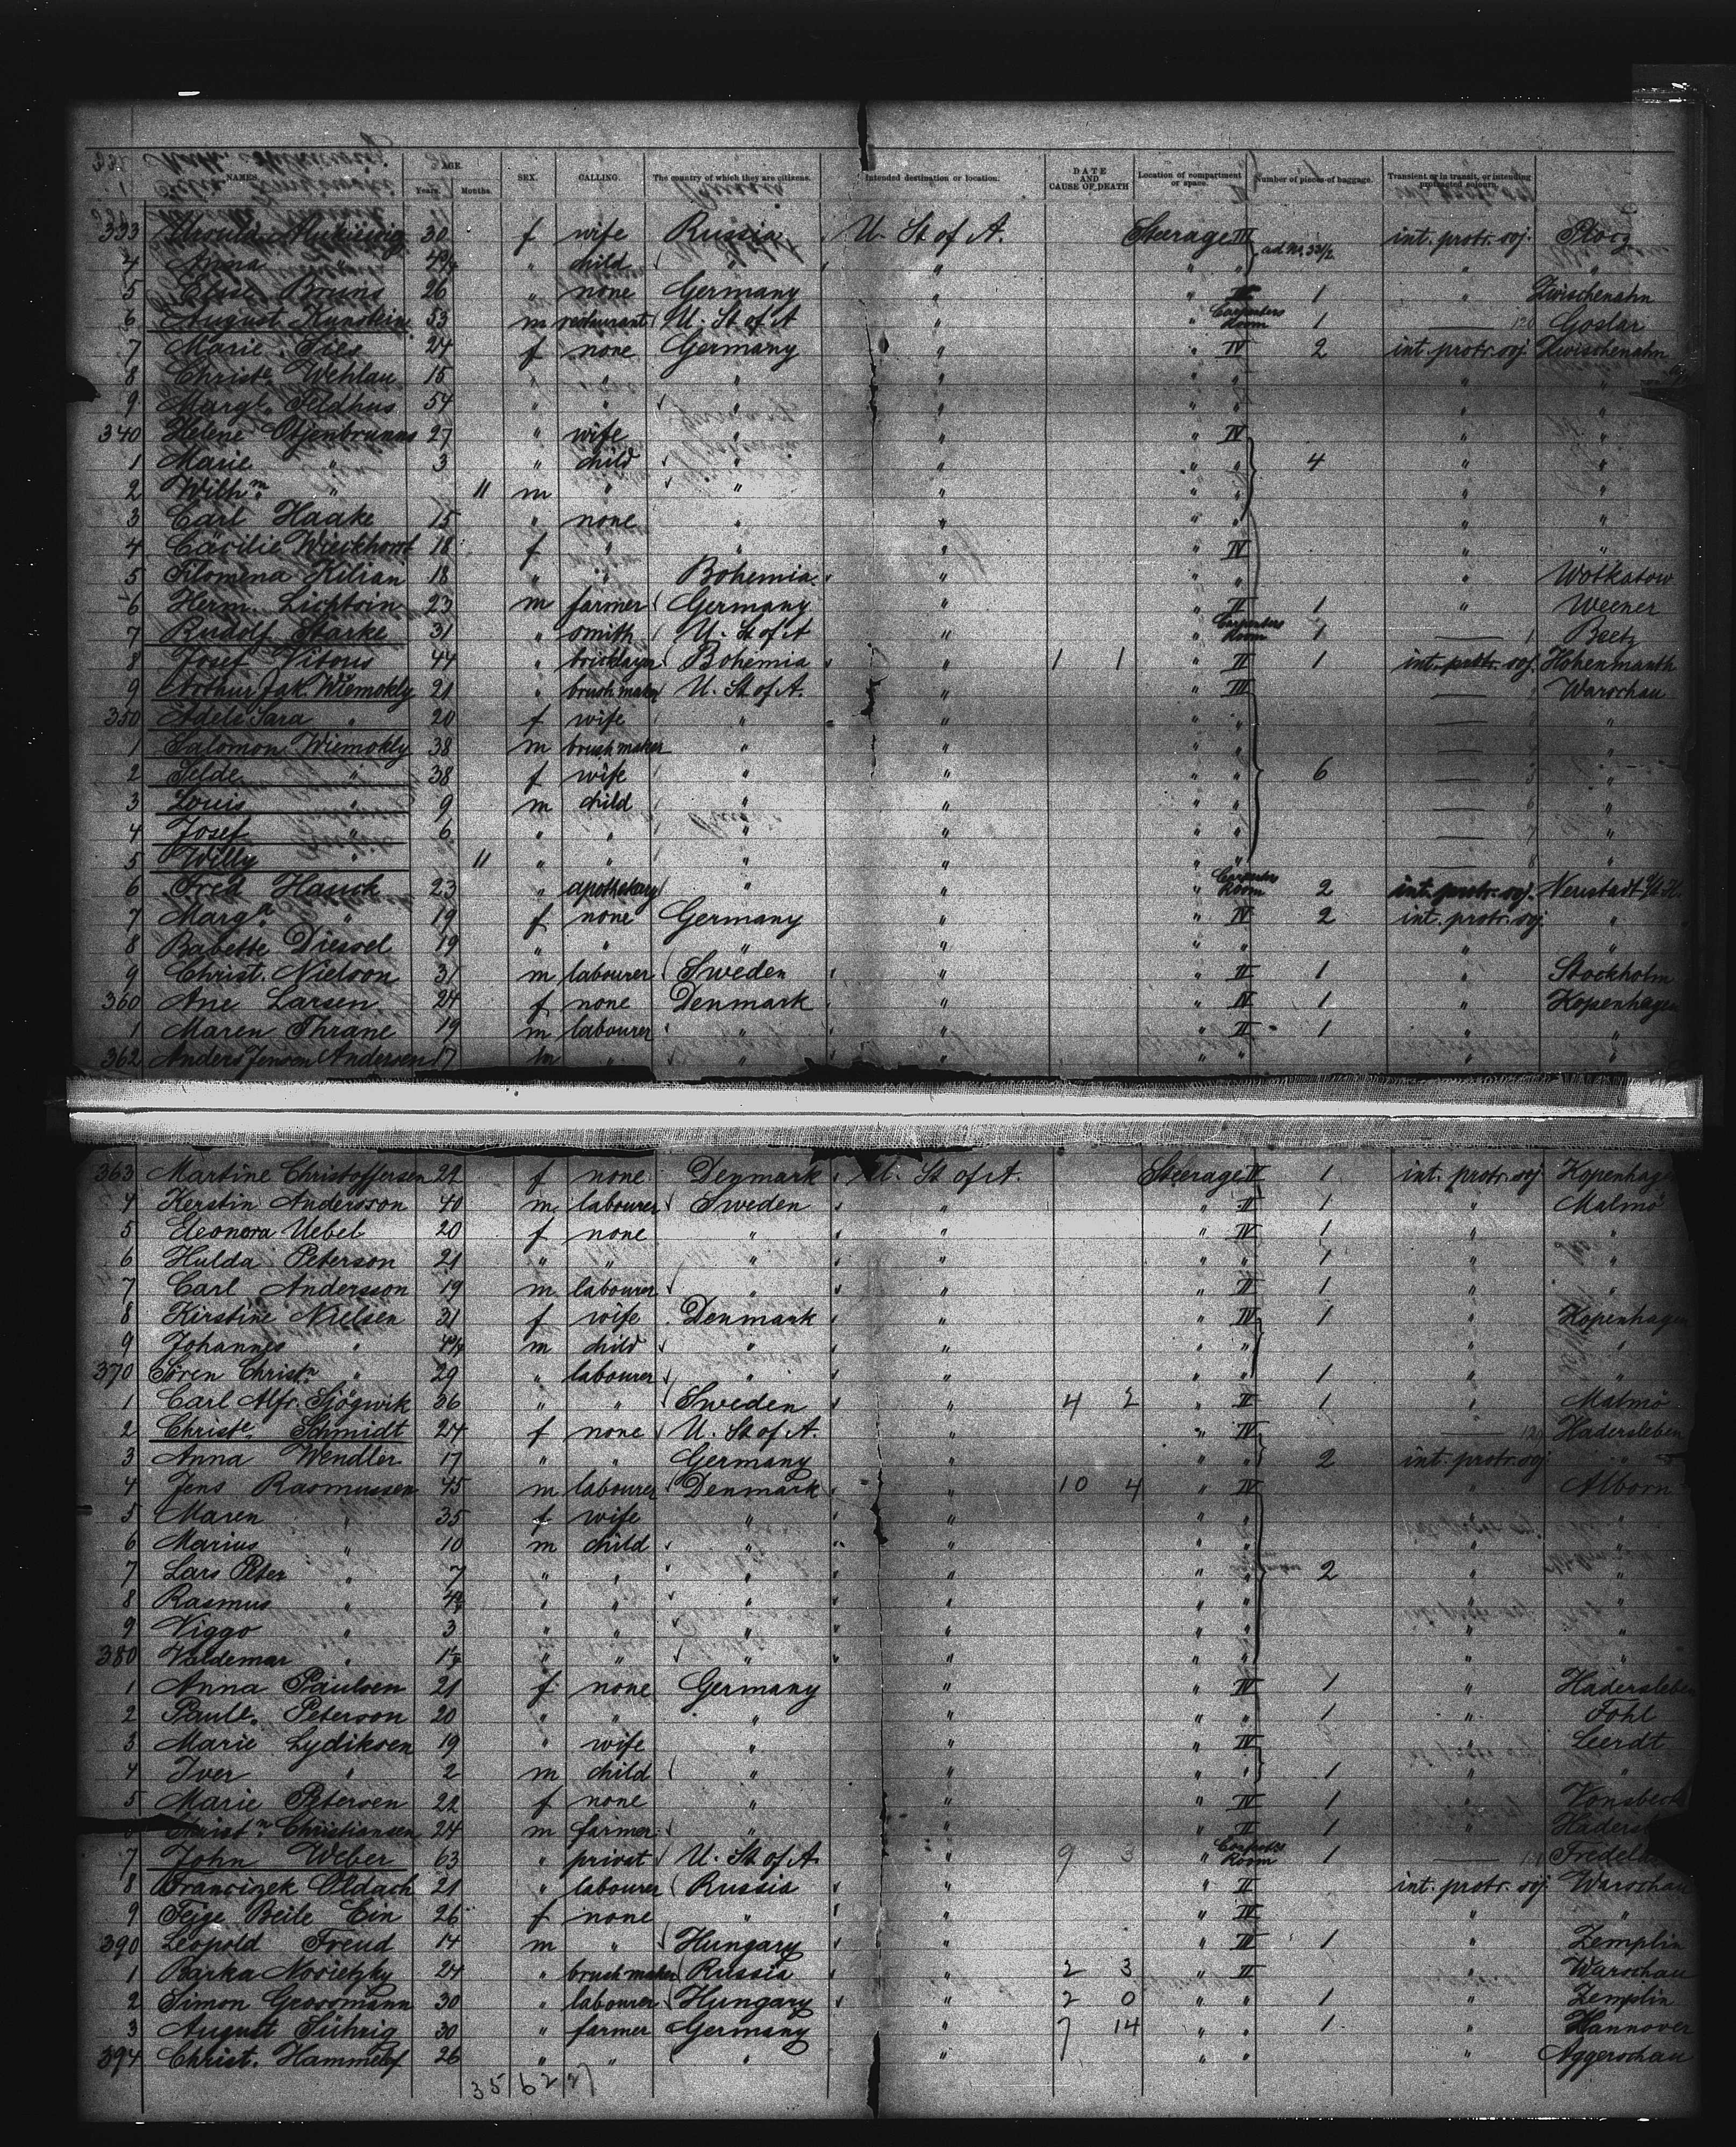 NAMES. AGE. Years. Months. SEX. CALLING. The country of which they are citizens. Intended destination or location. DATE AND CAUSE OF DEATH Location of compartment or space. Number of pieces of baggage. Transient or in transit, or intending protracted sojourn.
333 30 f wife Russia U. St of A. Steerage III ad No. 331/2 int. protr. soj. Plocz
4 Anna " child " " " " " "
5 Elise Bruns 26 " none Germany " " 1 " Zwischenahn
6 August Kunstein 53 m restaurant U. St of A " " Carpenters Room 1 — 120 Goslar
7 Marie Ties 24 f none Germany " " IV 2 int. protr. soj. Zwischenahn
8 Christe Wehlau 15 " " " " " " " "
9 Margt. Feldhus 54 " " " " " " " "
340 Helene Otjenbrunns 27 " wife " " " IV " "
1 Marie " 3 " child " " " " 4 " "
2 Wilhm " 11 m " " " " " " "
3 Carl Haake 15 " none " " " " " "
4 Cäcilie Wieckhorst 18 f " " " " IV " "
5 Filomena Kilian 18 " " Bohemia " " " " Wotkatow
6 Herm. Lichtsin 23 m farmer Germany " " II 1 " Weener
7 Rudolf Starke 31 " smith U. St of A " " Carpenters Room 1 — 1 Beetz
8 Josef Vitous 44 " bricklayer Bohemia " 1 1 " II 1 int. protr. soj. Hohenmauth
9 Arthur Jak. Wiemokly 21 " brush maker U. St. of A. " " III — " Warschau
350 Adele Sara " 20 f wife " " " " — "
1 Salomon Wiemokly 38 m brush maker " " " " — "
2 Selde " 38 f wife " " " " 6 — "
3 Louis " 9 m child " " " " — "
4 Josef " 6 " " " " " " — 7 "
5 Willy " 11 " " " " " " — 8 "
6 Fred Hauck 23 " apothekary " " " Carpenters Room 2 int. protr. soj. Neustadt a/d. H.
7 Marga " 19 f none Germany " " IV 2 int. protr. soj. "
8 Babette Diessel 19 " " " " " " " "
9 Christ. Nielson 31 m labourer Sweden " " II 1 " Stockholm
360 Ane Larsen 24 f none Denmark " " IV 1 " Kopenhagen
1 Maren Thrane 19 m labourer " " " II 1 " "
362 Anders Jensen Andersen 17 m " " " " " " "
363 Martine Christoffersen 22 f none Denmark U. St of A. Steerage IV 1 int. protr. soj. Kopenhagen
4 Kerstin Andersson 40 m labourer Sweden " " II 1 " Malmö
5 Eleonora Uebel 20 f none " " " IV 1 " "
6 Hulda Peterson 21 " " " " " " 1 " "
7 Carl Andersson 19 m labourer " " " II 1 " "
8 Kirstine Nielsen 31 f wife Denmark " " IV 1 " Kopenhagen
9 Johannes " m child " " " " " "
370 Sören Christn " 29 " labourer " " " " 1 " "
1 Carl Alfr. Sjögwik 36 " " Sweden " 4 2 " II 1 " Malmö
2 Christe Schmidt 24 f none U. St of A. " " IV — 120 Hadersleben
3 Anna Wendler 17 " " Germany " " " 2 int. protr. soj. "
4 Jens Rasmussen 45 m labourer Denmark " 10 4 " IV " Alborn
5 Maren " 35 f wife " " " " " "
6 Marius " 10 m child " " " " " "
7 Lars Peter " 7 " " " " " " 2 " "
8 Rasmus " " " " " " " " "
9 Viggo " 3 " " " " " " " "
380 Valdemar " " " " " " " " "
1 Anna Paulsen 21 f none Germany " " IV 1 " Hadersleben
2 Paule. Peterson 20 " " " " " " 1 " Fohl
3 Marie Lydiksen 19 " wife " " " IV " Leerdt
4 Iver " 2 m child " " " " 1 " "
5 Marie Petersen 22 f none " " " IV 1 " Vonsbeck
Christn. Christiansen 24 m farmer " " " II 1 "
7 John Weber 63 " privat U. St of A " 9 3 " Carpenters Room 1 —
8 Franciszek Oldach 21 " labourer Russia " " II int. protr. soj. Warschau
9 Feige Beile Ein 26 f none " " " IV " "
390 Leopold Freud 14 m " Hungary " " III 1 " Zemplin
1 Barka Novietzky 24 " brush maker Russia " 2 3 " II " Warschau
2 Simon Grossmann 30 " labourer Hungary " 2 0 " " 1 " Zemplin
3 August Sührig 30 " farmer Germany " 7 14 " " 1 " Hannover
394 Christ. Hammelef 26 " " " " " " " Aggerschau
35 62 27